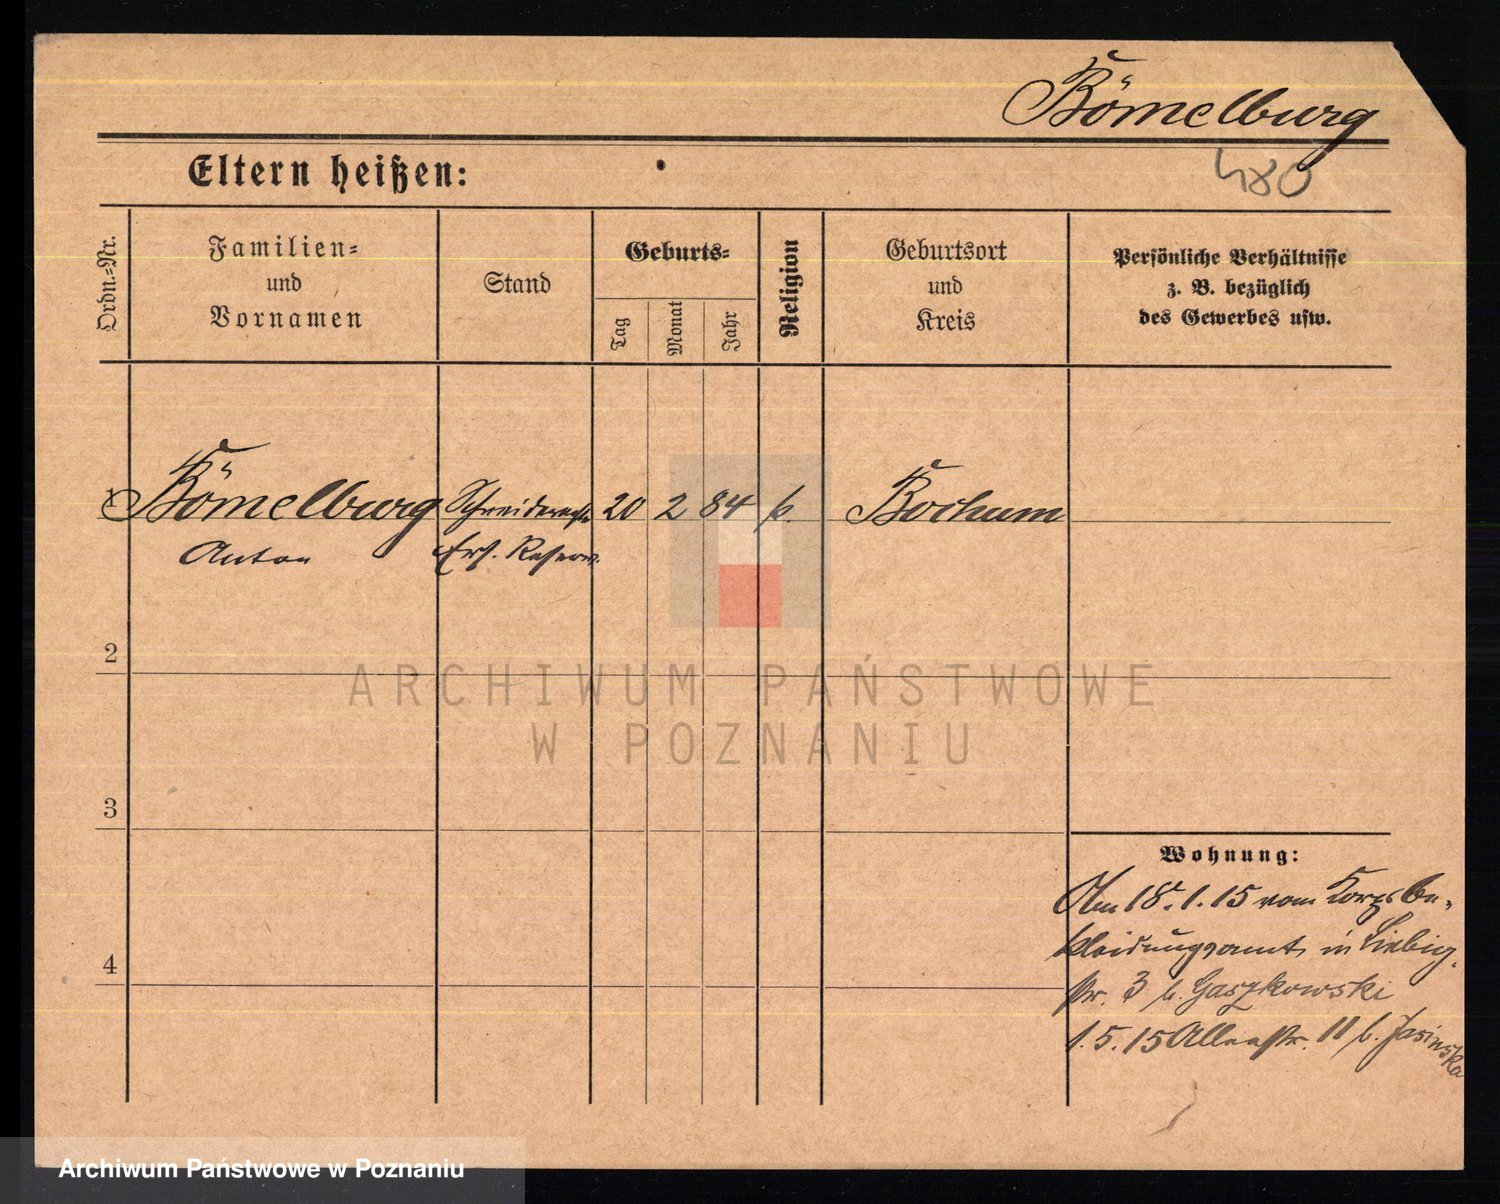 Bömelburg
480
Eltern heißen:
Ordn.-Nr.
Familien-
und
Vornamen
Stand
Geburts-
Tag
Monat
Jahr
Religion
Geburtsort
und
Kreis
Persönliche Verhältnisse
z. B. bezüglich
des Gewerbes usw.
1 Bömelburg 20 2 84 k. Bochum
Anton Ers. Reserv.
2
3
4
Wohnung:
Am 18. 1. 15 vom Korpsbe-
kleidungsamt in Liebig-
str. 3 b. Gaszkowski
1. 5. 15 Allenstr. 11 b. Jasinska
ARCHIWUM PAŃSTWOWE
W POZNANIU
Archiwum Państwowe w Poznaniu